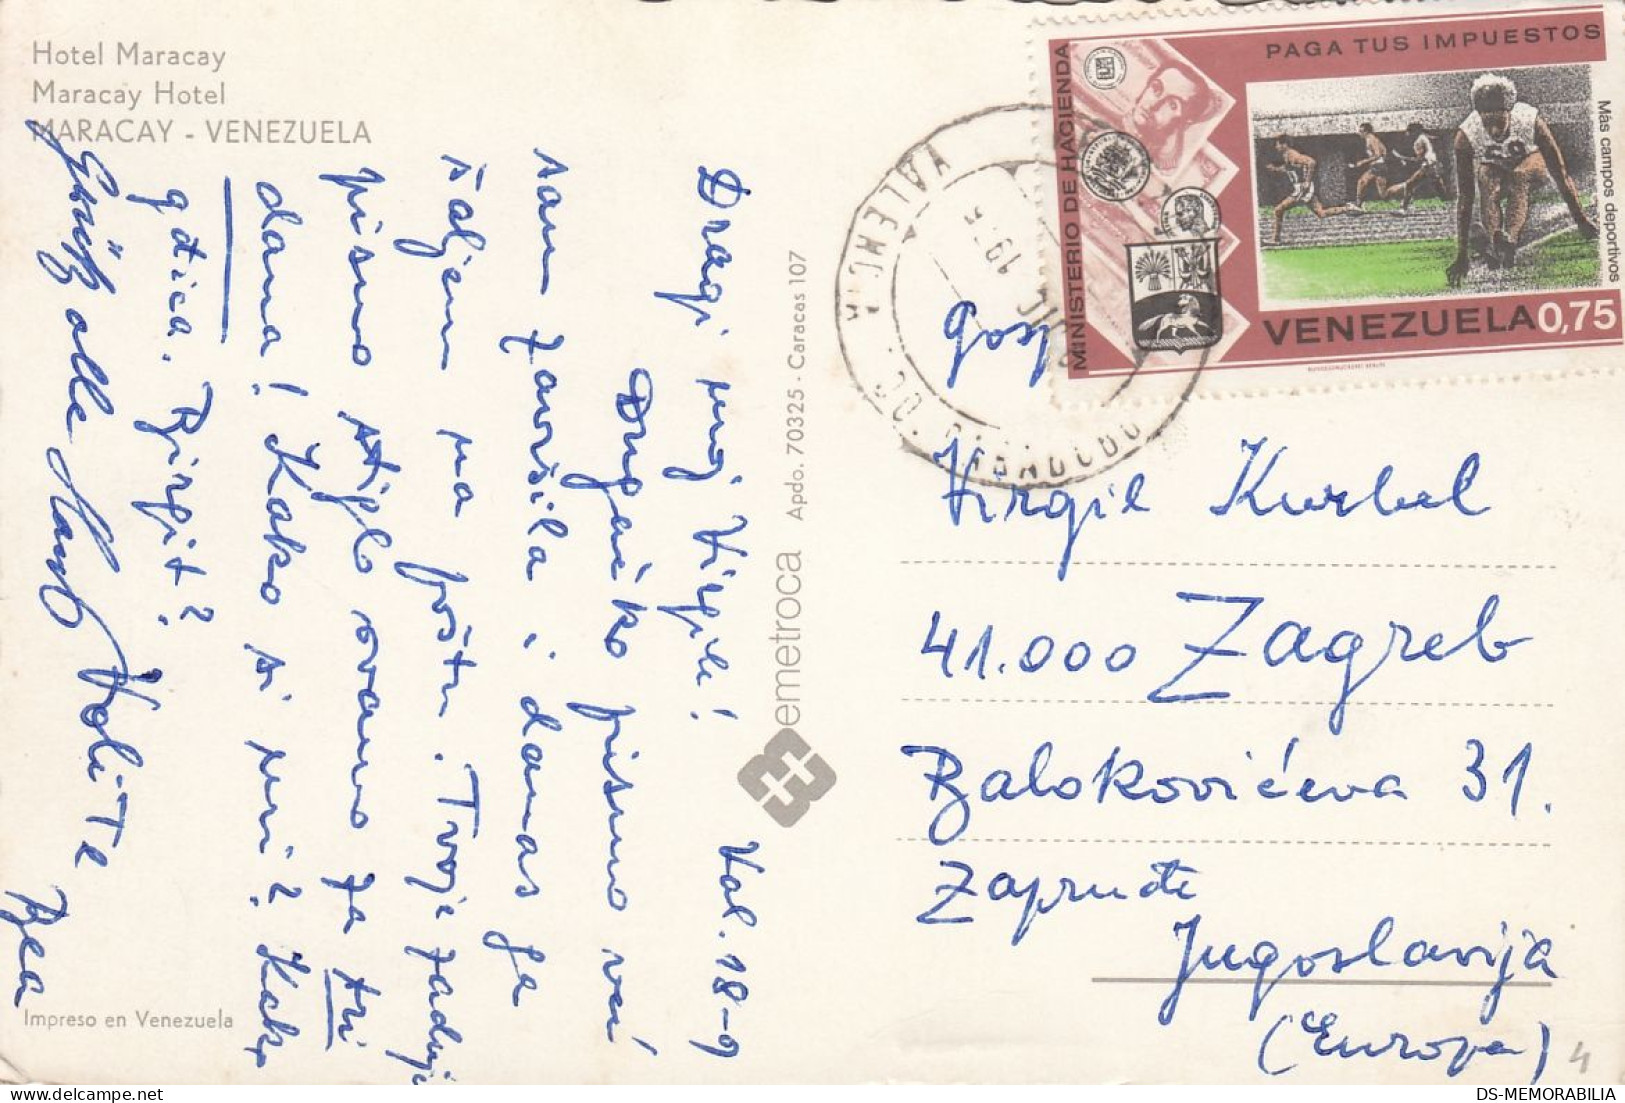 Hotel Maracay
Maracay Hotel
MARACAY - VENEZUELA
Val. 18-9
Dragi moj Virgile!
Drugačko pismo već
sam završila i danas ga
šaljem na poštu. Tvoje zadnje
pismo stiglo ovamo za tri
dana! Kako si mi? Kako
gđica. Birgit?
Grüß alle
Voli Te
Bea
Impreso en Venezuela
emetroca Apdo. 70325 - Caracas 107
VALENCIA
EDO. CARABOBO
DIC
PAGA TUS IMPUESTOS
MINISTERIO DE HACIENDA
Más campos deportivos
VENEZUELA 0,75
Gosp
Virgil Kurbel
41.000 Zagreb
Balokovićeva 31.
Zapruđe
Jugoslavija
(Europa)
4
DS-MEMORABILIA